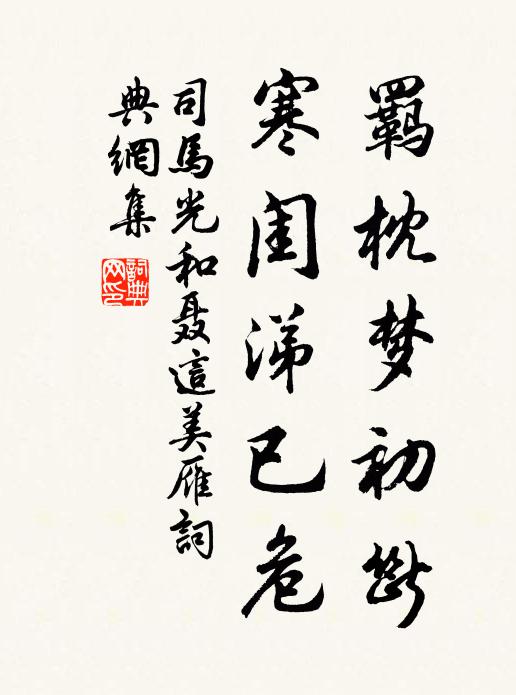 羈枕梦初斷
寒闺涕已危
司馬光和聂這美雁詞
典網集
詞典网印